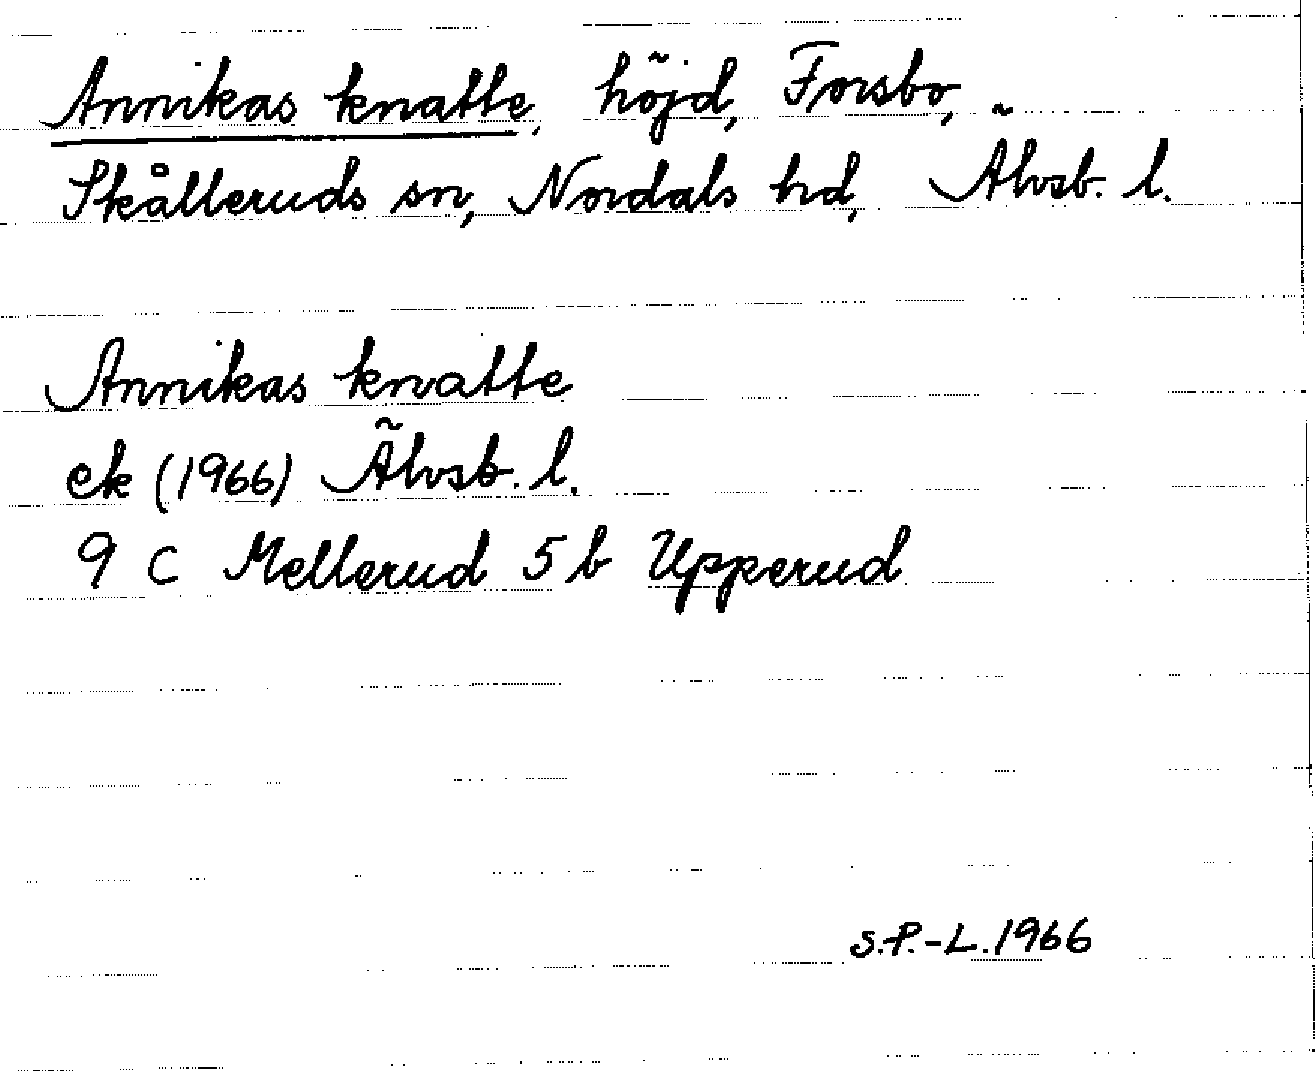 Annikas knatte, höjd, Forsbo,
Skålleruds sn, Nordals hd, Älvsb. l.
Annikas knatte
ek (1966) Älvsb. l.
9 C Mellerud 5 b Upperud
S.P.-L. 1966